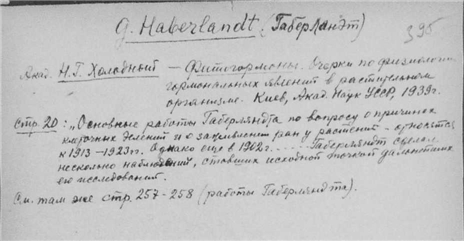 G. Haberlandt (Габерландт)
395
Акад. Н.Г. Холодный — Фитогормоны. Очерки по физиологии
гормональных явлений в растительном
организме. Киев, Акад. Наук УССР, 1939г.
Стр. 20: „Основные работы Габерляндта по вопросу о причинах
клеточных делений и о заживлении ран у растений - относятся
к 1913—1923гг. Однако еще в 1902г. .... Габерляндт сделал
несколько наблюдений, ставших исходной точкой дальнейших
его исследований.
См. там же стр. 257-258 (работы Габерляндта).